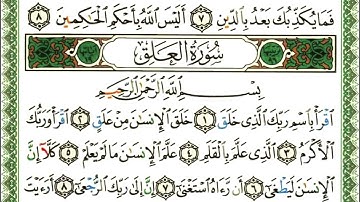 فَمَا يُكَذِّبُكَ بَعْدُ بِالدِّينِ ٧ أَلَيْسَ اللَّهُ بِأَحْكَمِ الْحَاكِمِينَ ٨
سُورَةُ العَلَق
بِسْمِ اللَّهِ الرَّحْمَٰنِ الرَّحِيمِ
اقْرَأْ بِاسْمِ رَبِّكَ الَّذِي خَلَقَ ١ خَلَقَ الْإِنسَانَ مِنْ عَلَقٍ ٢ اقْرَأْ وَرَبُّكَ
الْأَكْرَمُ ٣ الَّذِي عَلَّمَ بِالْقَلَمِ ٤ عَلَّمَ الْإِنسَانَ مَا لَمْ يَعْلَمْ ٥ كَلَّا إِنَّ
الْإِنسَانَ لَيَطْغَىٰ ٦ أَن رَّءَاهُ اسْتَغْنَىٰ ٧ إِنَّ إِلَىٰ رَبِّكَ الرُّجْعَىٰ ٨ أَرَءَيْتَ